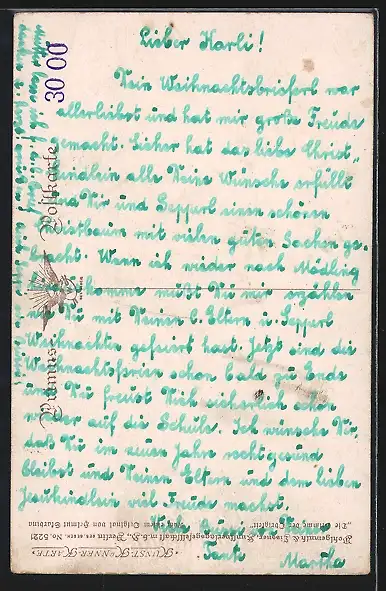 Lieber Karli!
Dein Weihnachtsbrieferl war
allerliebst und hat mir große Freude
gemacht. Sicher hat das liebe Christ-
kindlein alle Deine Wünsche erfüllt
und Dir und Pepperl einen schönen
Christbaum mit vielen guten Sachen ge-
bracht. Wenn ich wieder nach Mödling
komme mußt Du mir erzählen
wie Du mit Deinen l. Eltern u. Pepperl
Weihnachten gefeiert hast. Jetzt sind die
Weihnachtsferien schon bald zu Ende
und Du freust Dich sicherlich schon
wieder auf die Schule. Ich wünsche Dir,
daß Du im neuen Jahre recht gesund
bleibst und Deinen Eltern und dem lieben
Jesukindlein viel Freude machst.
Viele
Tante Martha
3000
Postkarte
Primus
"KUNST-KENNER-KARTE"
No. 5221
Nach einem Original von Helmut Skarbina